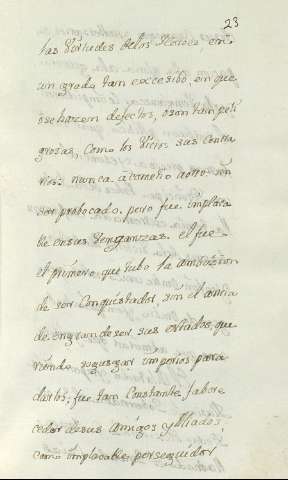 23
las Virtudes de los Heroes en
un grado tan excesibo en que
o se hazen defectos, o son tan peli
grosas, como los Vicios sus contra
rios: nunca acometio a otro sin
ser probocado, pero fue implaca
ble en sus Venganzas. el fue
el primero que tubo la ambicion
de ser Conquistador, sin el ansia
de engrandeser sus estados, que
riendo sojusgar imperios para
darlos, fue tan Constante fabore
cedor de sus Amigos y Aliados,
como implacable perseguidor